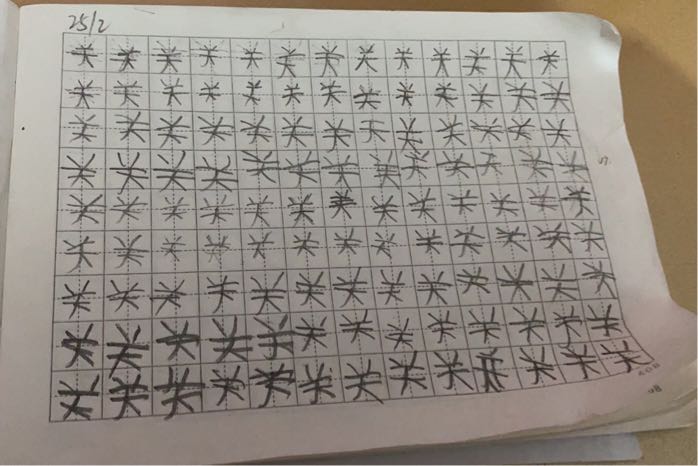 25/2
关关关关关关关关关关关关关
关关关关关关关关关关关关关
关关关关关关关关关关关关关
关关关关关关关关关关关关关
关关关关关关关关关关关关关
关关关关关关关关关关关关关
关关关关关关关关关关关关关
关关关关关关关关关关关关关
关关关关关关关关关关关关关